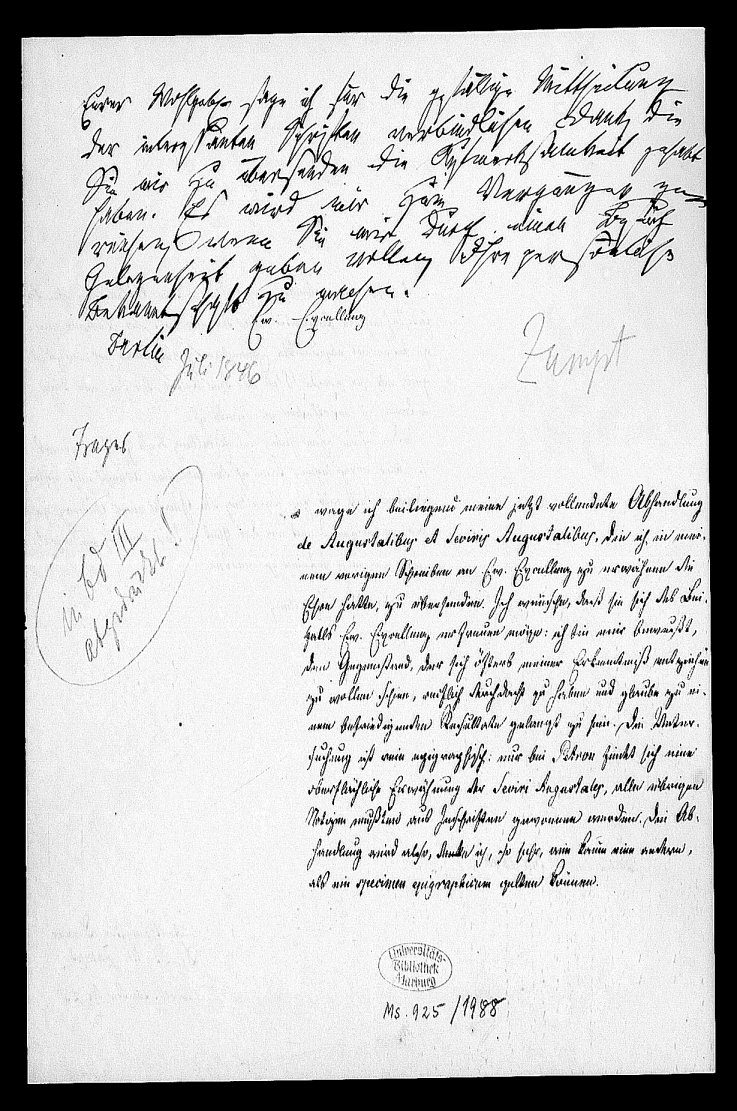 Eurer Wohlgeb. sage ich für die gefällige Mittheilung
der interessanten Schriften verbindlichen Dank, die
Sie mir zu übersenden die Aufmerksamkeit gehabt
haben. Es wird mir zum Vergnügen ge-
reichen, wenn Sie mir durch einen Besuch
Gelegenheit geben wollen, Ihre persönliche
Bekanntschaft zu machen.
Ew. Excellenz
Berlin
Juli 1846
Zumpt
in Bd III
abgedruckt!
wage ich beiliegend meine jetzt vollendete Abhandlung
de Augustalibus et Seviris Augustalibus, deren ich in mei-
nem vorigen Schreiben an Ew. Excellenz zu erwähnen die
Ehre hatte, zu übersenden. Ich wünsche, daß sie sich des Bei-
falls Ew. Excellenz erfreuen möge: ich bin mir bewußt,
den Gegenstand, der sich öfters meiner Erkenntniß entziehen
zu wollen schien, reiflich durchdacht zu haben und glaube zu ei-
nem befriedigenden Resultate gelangt zu sein. Die Unter-
suchung ist rein epigraphisch: nur bei Petron findet sich eine
oberflächliche Erwähnung der Seviri Augustales, alle übrigen
Notizen mußten aus Inschriften gewonnen werden. Die Ab-
handlung wird also, denke ich, so sehr, wie kaum eine andere,
als ein specimen epigraphicum gelten können.
Universitäts-
Bibliothek
Marburg
Ms. 925/1988